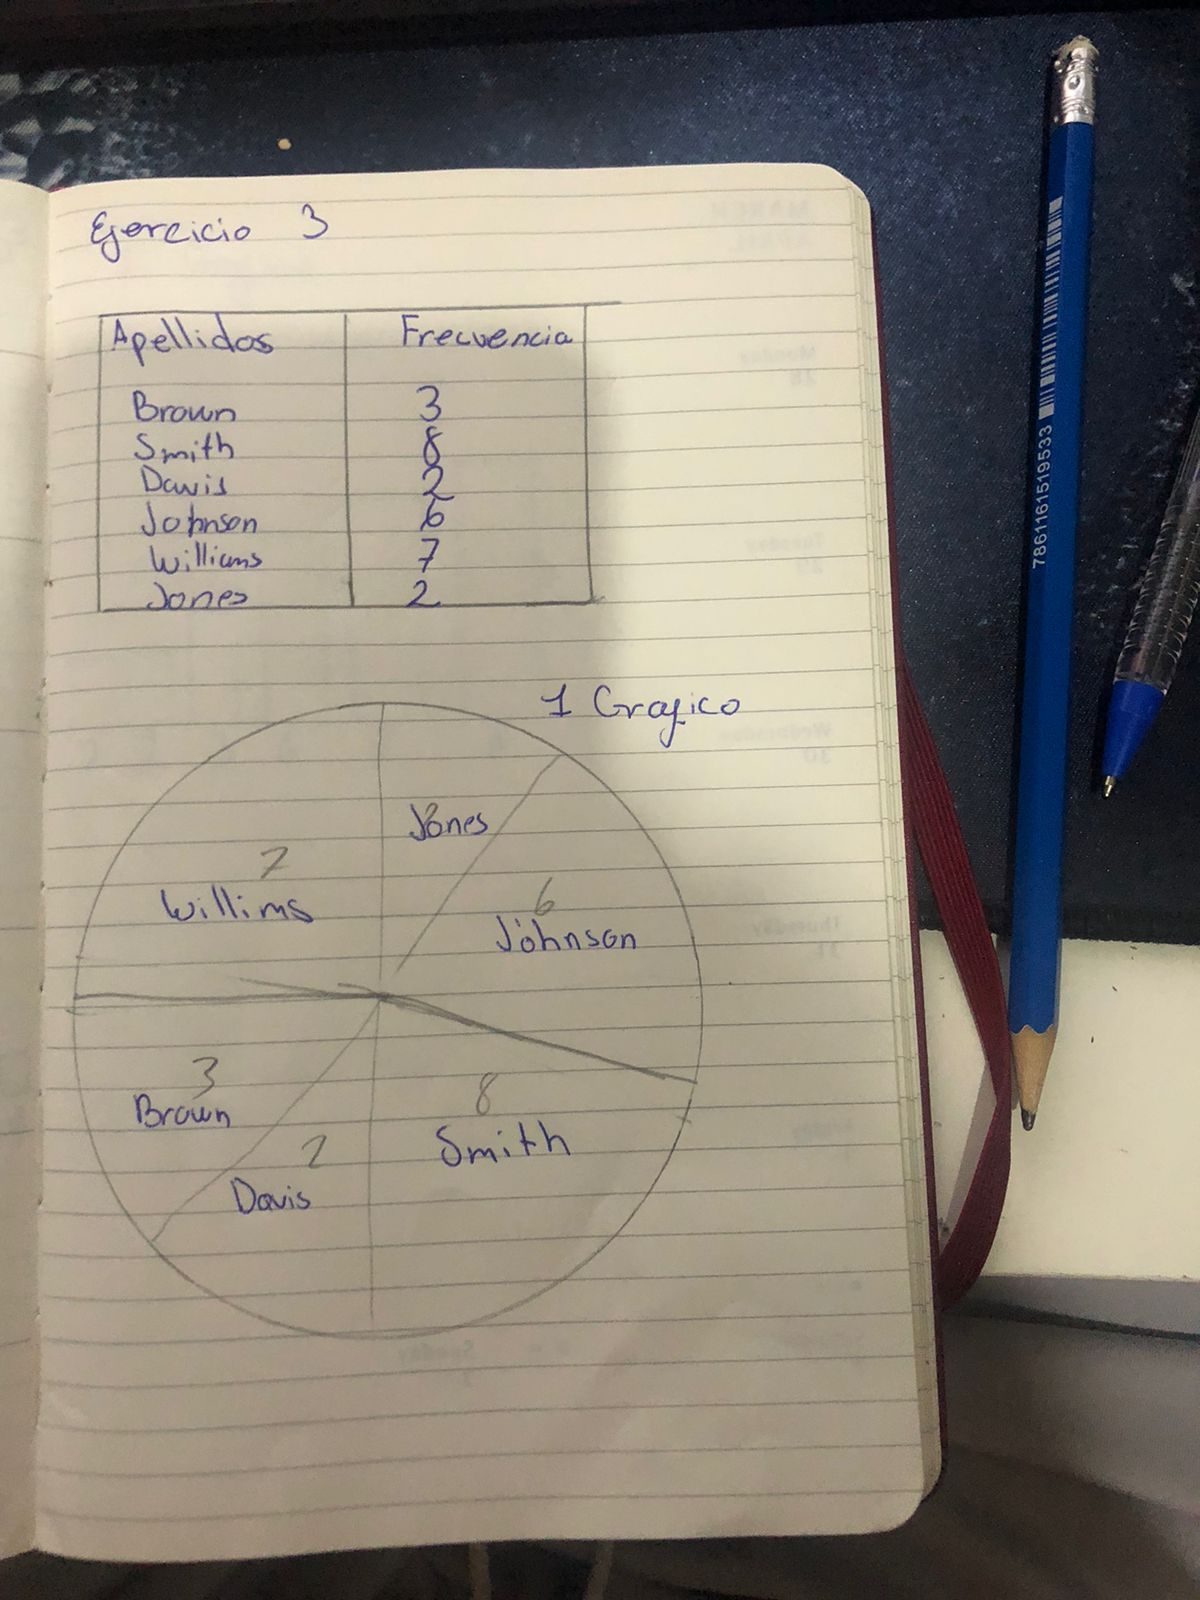 Ejercicio 3
Apellidos Frecuencia
Brown 3
Smith 8
Davis 2
Johnson 6
Williams 7
Jones 2
1 Grafico
Jones
7
Willims
6
Johnson
3
Brown
8
Smith
2
Davis
7861161519533